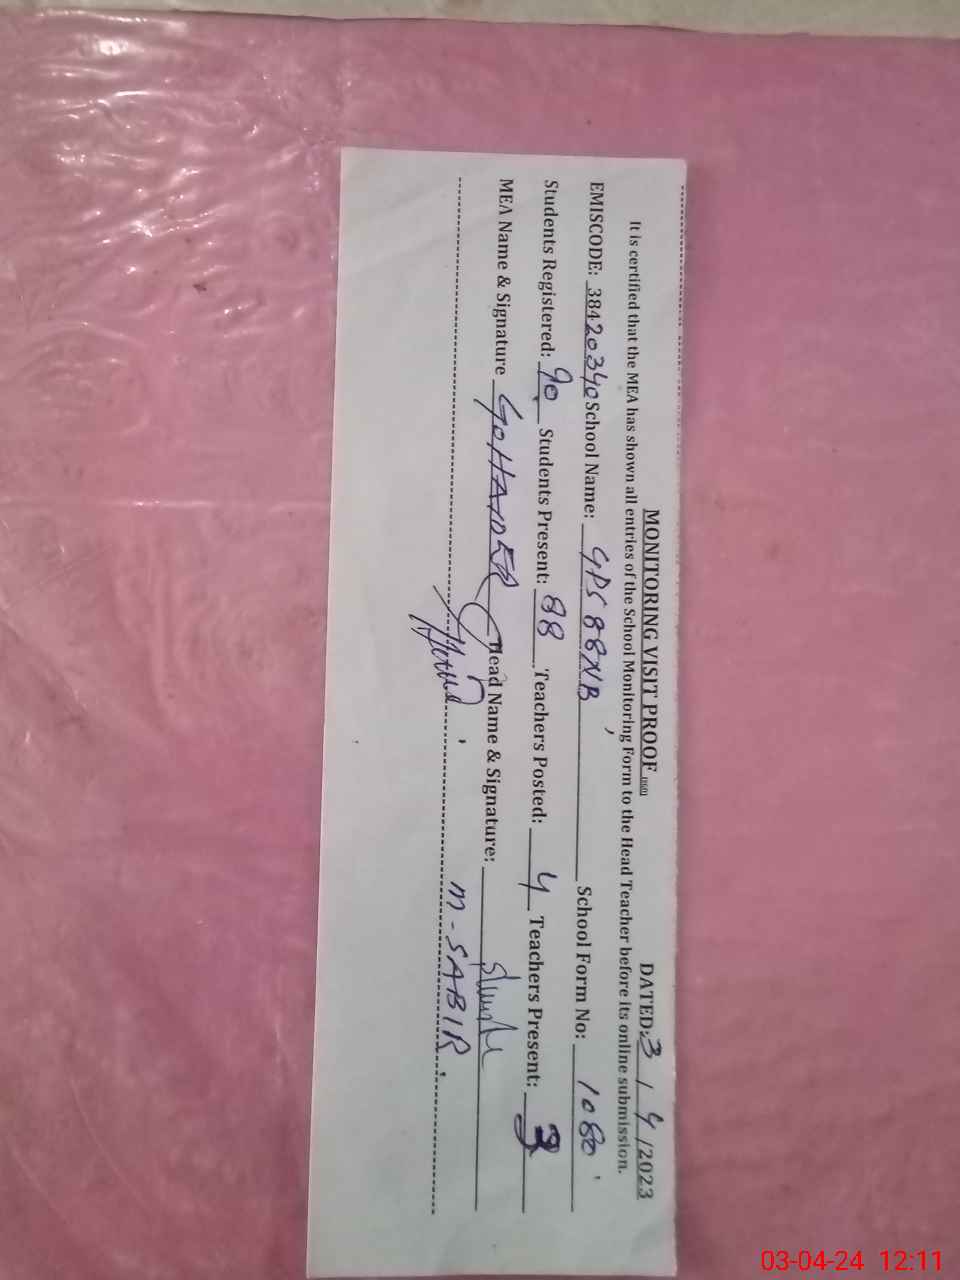 MONITORING VISIT PROOF DATED: 3 / 4 /2023
It is certified that the MEA has shown all entries of the School Monitoring Form to the Head Teacher before its online submission.
EMISCODE: 38420340 School Name: GPS 88NB School Form No: 1080
Students Registered: 90 Students Present: 88 Teachers Posted: 4 Teachers Present: 3
MEA Name & Signature G. HAIDER Head Name & Signature:
M-SABIR
03-04-24 12:11